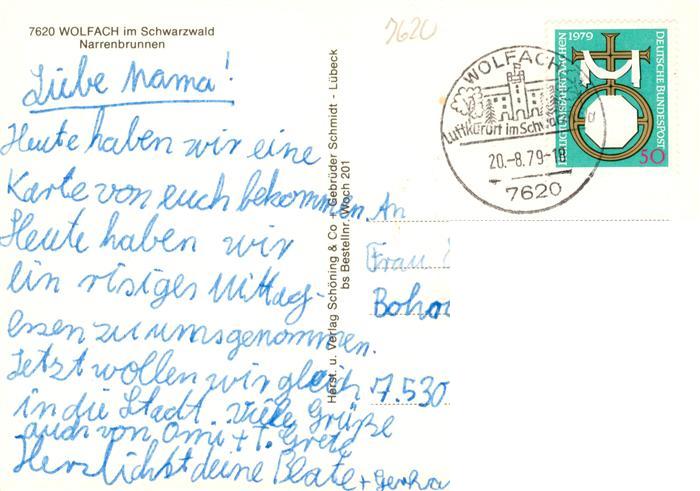 7620 WOLFACH im Schwarzwald
Narrenbrunnen
7620
Liebe Mama!
Heute haben wir eine
Karte von euch bekommen.
Heute haben wir
ein risiges Mittag-
essen zu umsgenommen.
Jetzt wollen wir gleich
in die Stadt. Viele Grüße
auch von Omi + T. Greta
Herzlichst deine Beate + Gerha
Herst. u. Verlag Schöning & Co + Gebrüder Schmidt - Lübeck
bs Bestellnr. Woch 201
WOLFACH
Luftkurort im Schw
20.-8.79-18
7620
1979
DEUTSCHE BUNDESPOST
50
An
Frau
7.530